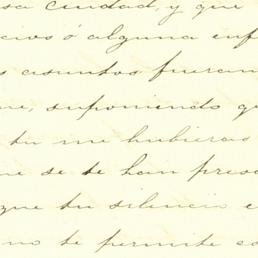 sa ciudad, y que
cios ó alguna enf
s asuntos fueran
ue, suponiendo q
tu me hubieras
ue se te han pres
que tu silencio e
no te permite es